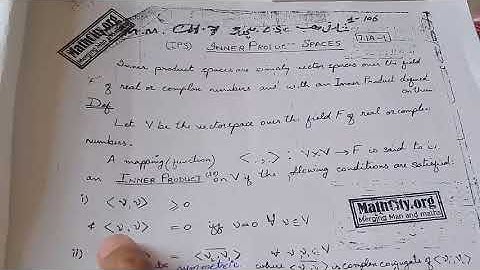 MathCity.org
Merging Man and maths
M.M. CH-7
1-106
(IPS) INNER PRODUCT SPACES
7.1A-1
Inner product spaces are simply vector spaces over the field
F of real or complex numbers and with an Inner Product defined
on them
Def
Let V be the vector space over the field F of real or complex
numbers.
A mapping (function) < . , . > : V×V → F is said to be
an INNER PRODUCT on V if the following conditions are satisfied:
i) <v, v> ≥ 0
& <v, v> = 0 iff v=0 ∀ v∈V
MathCity.org
Merging Man and maths
ii)
symmetric where is complex conjugate of